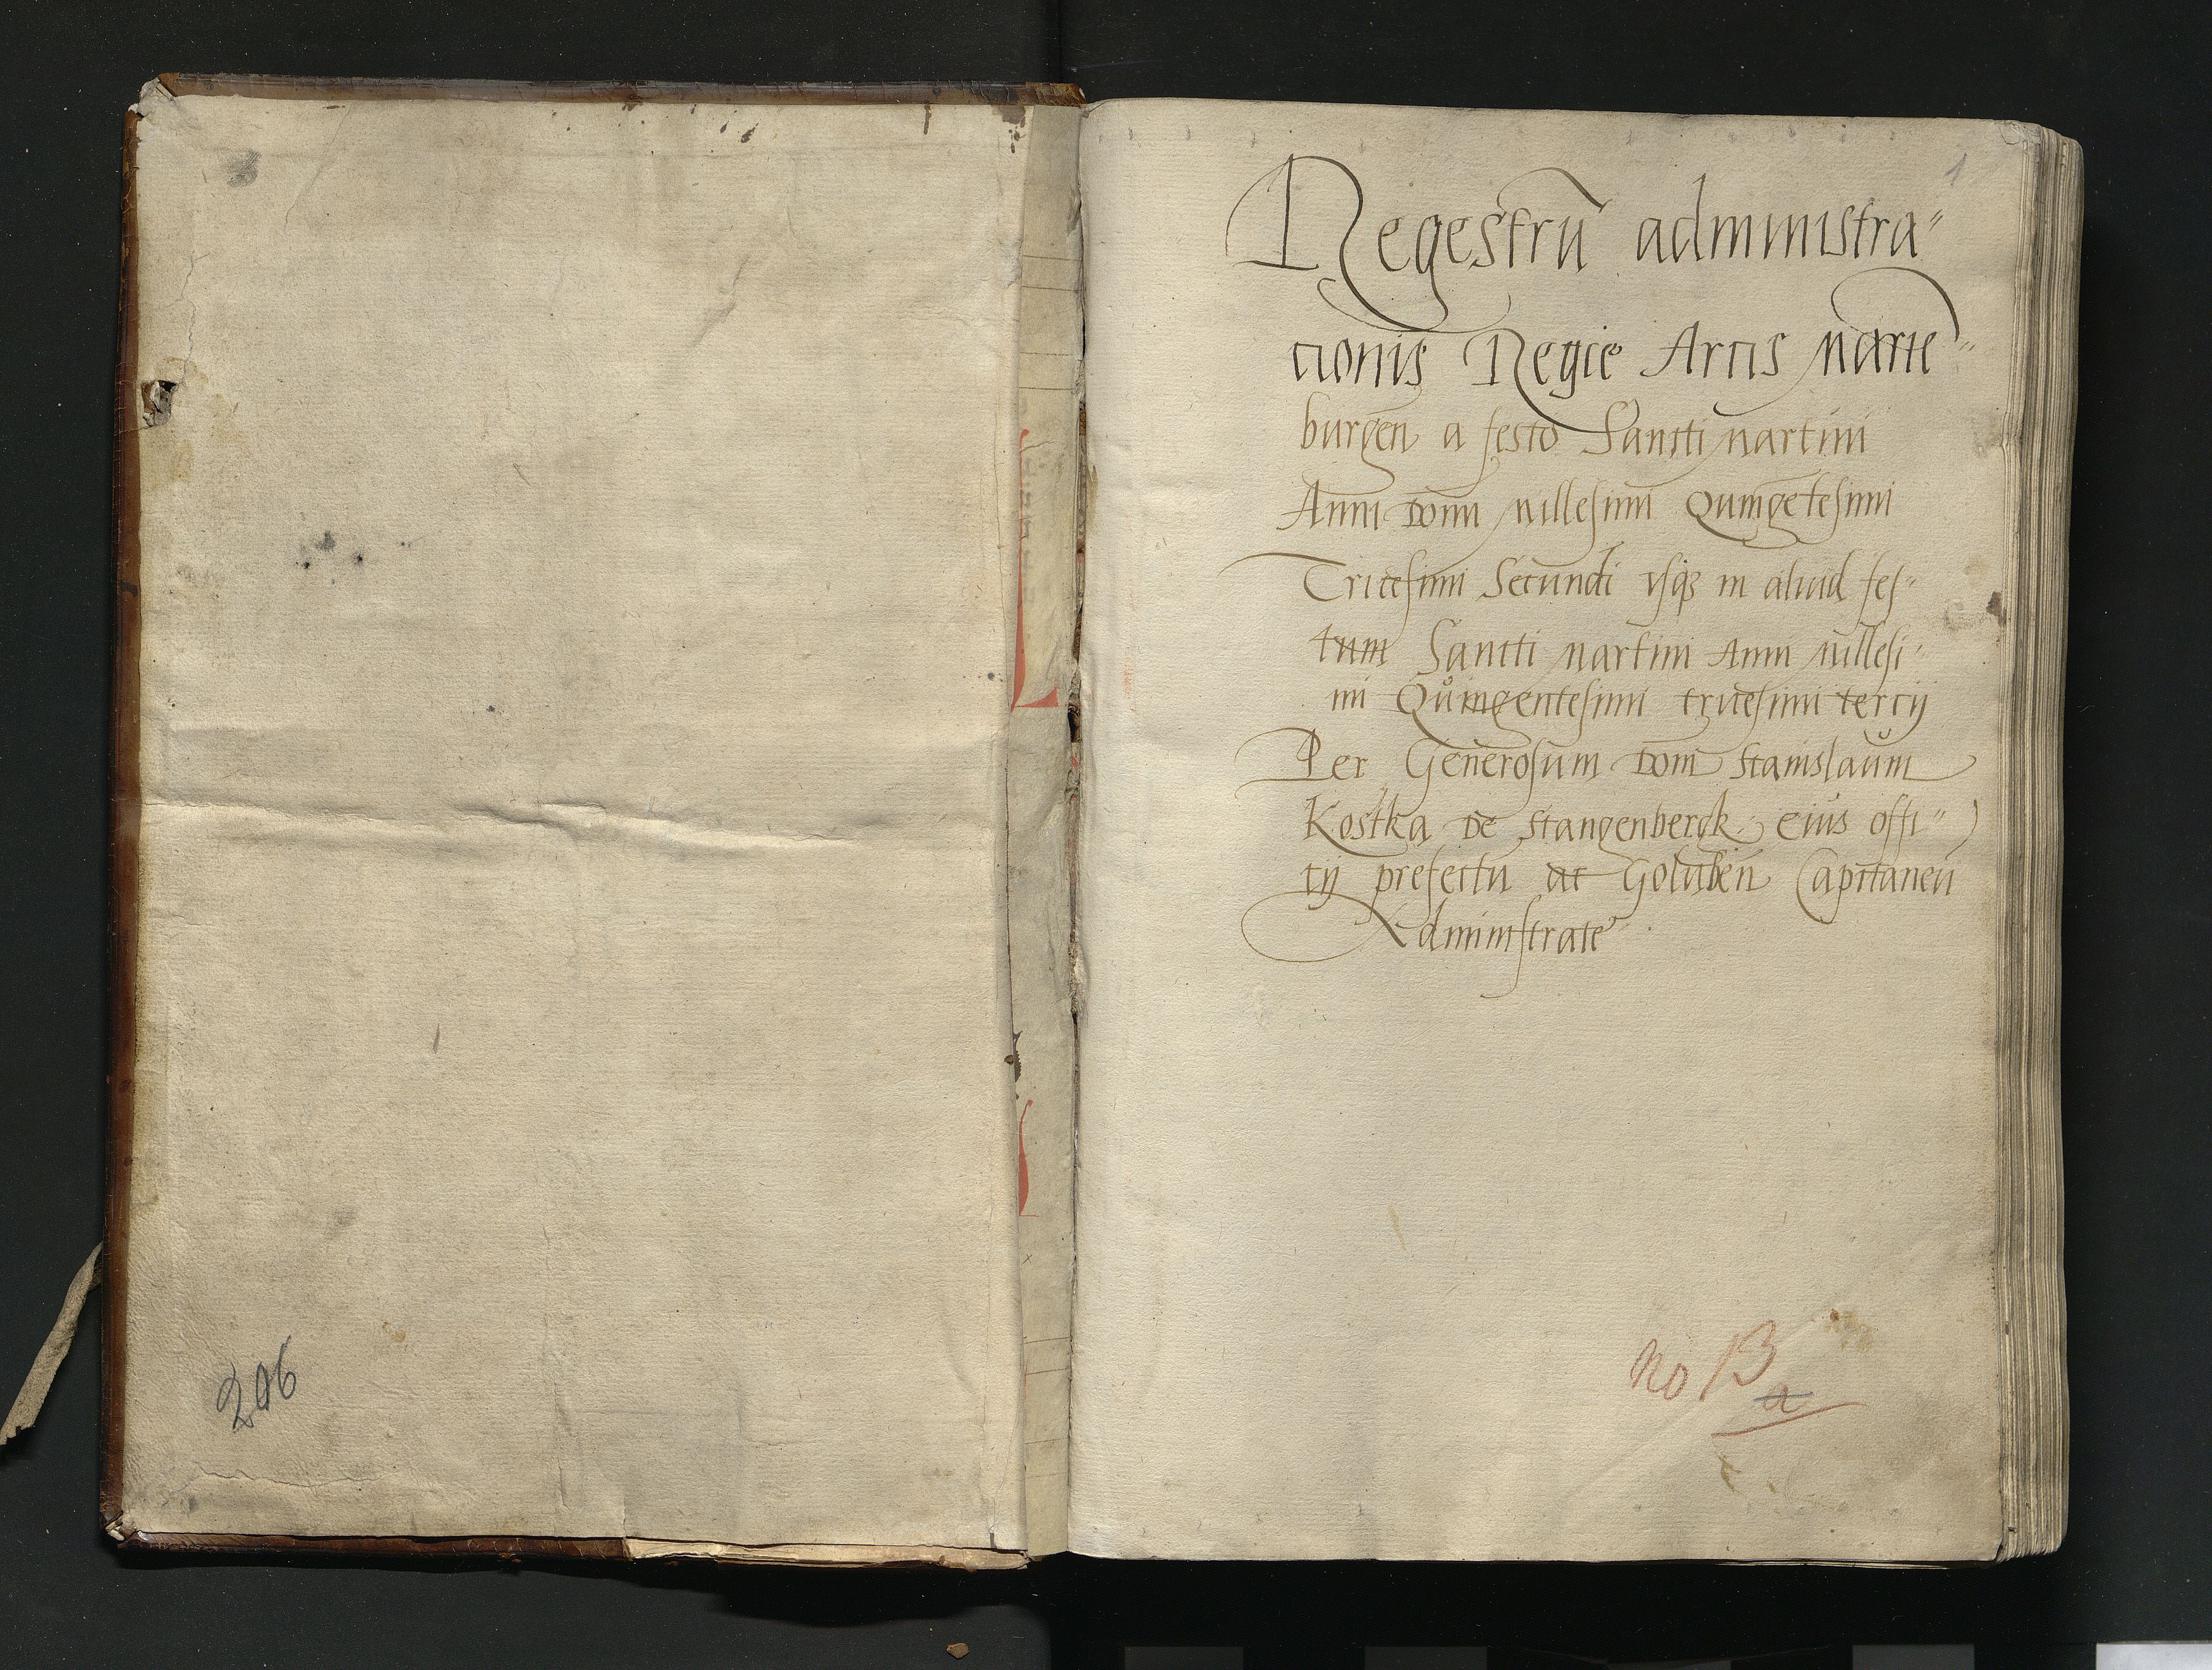 206
1
Regestrū administra"
cionis Regie Arcis Marie"
burgen̄ a festo Sancti Martini
Anni Domī Millesimi Quīgētesimi
Tricesimi Secundi vsq3 in aliud fes"
tum Sancti Martini Anni Millesi"
mi Quingentesimi tricesimi tercij
Per Generosum Dom̄ Stanislaum
Kostka De Stangenbergk eius offi"
cij prefectū ac Goluben̄ Capitaneū
Administrate
no B a